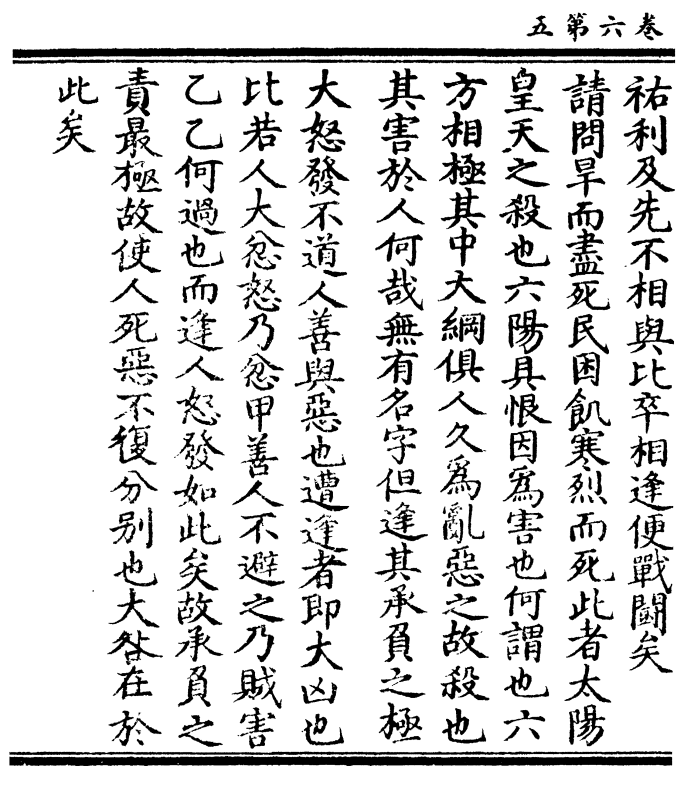 卷六第五
祐利及先不相與比卒相逢便戰鬬矣
請問旱而盡死民困飢寒烈而死此者太陽
皇天之殺也六陽具恨因爲害也何謂也六
方相極其中大綱俱人久爲亂惡之故殺也
其害於人何哉無有名字但逢其承負之極
大怒發不道人善與惡也遭逢者即大凶也
比若人大忿怒乃忿甲善人不避之乃賊害
乙乙何過也而逢人怒發如此矣故承負之
責最極故使人死惡不復分別也大咎在於
此矣